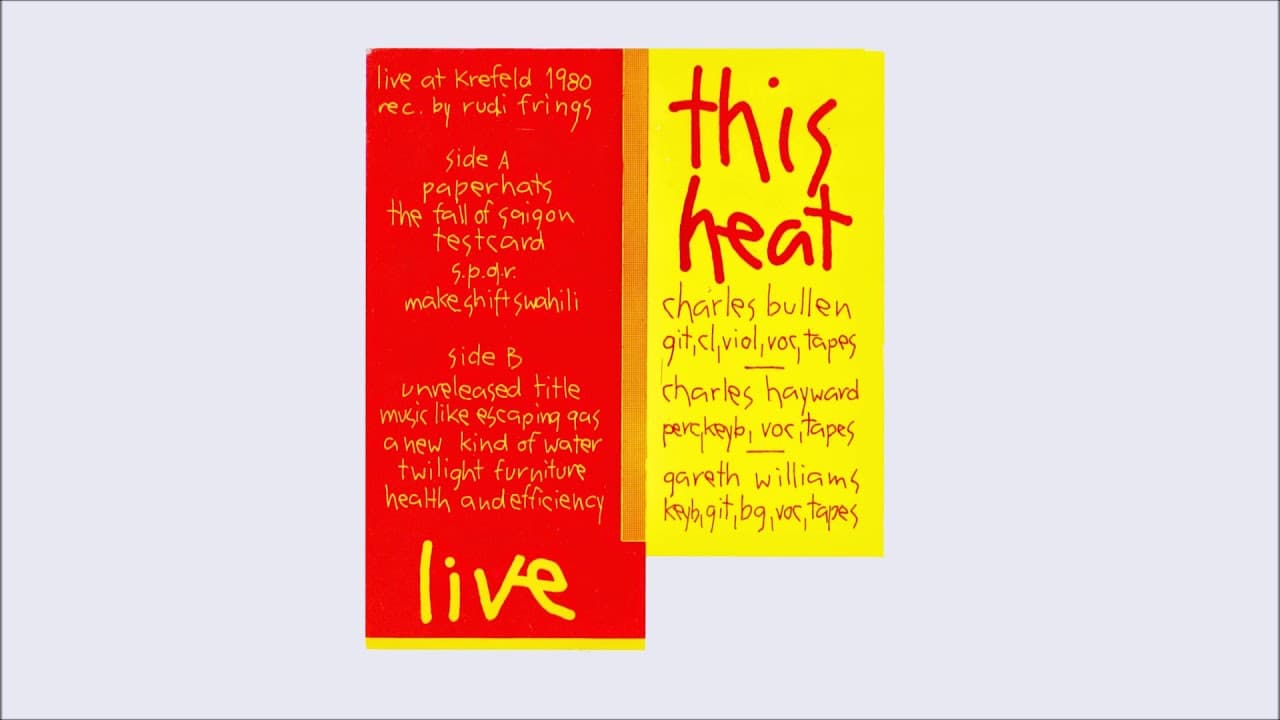 live at Krefeld 1980
rec. by rudi frings
side A
paperhats
the fall of saigon
testcard
s.p.q.r.
makeshiftswahili
side B
unreleased title
music like escaping gas
a new kind of water
twilight furniture
health and efficiency
live
this
heat
charles bullen
git,cl,viol,voc,tapes
charles hayward
perc,keyb, voc,tapes
gareth williams
keyb,git,bg,voc,tapes